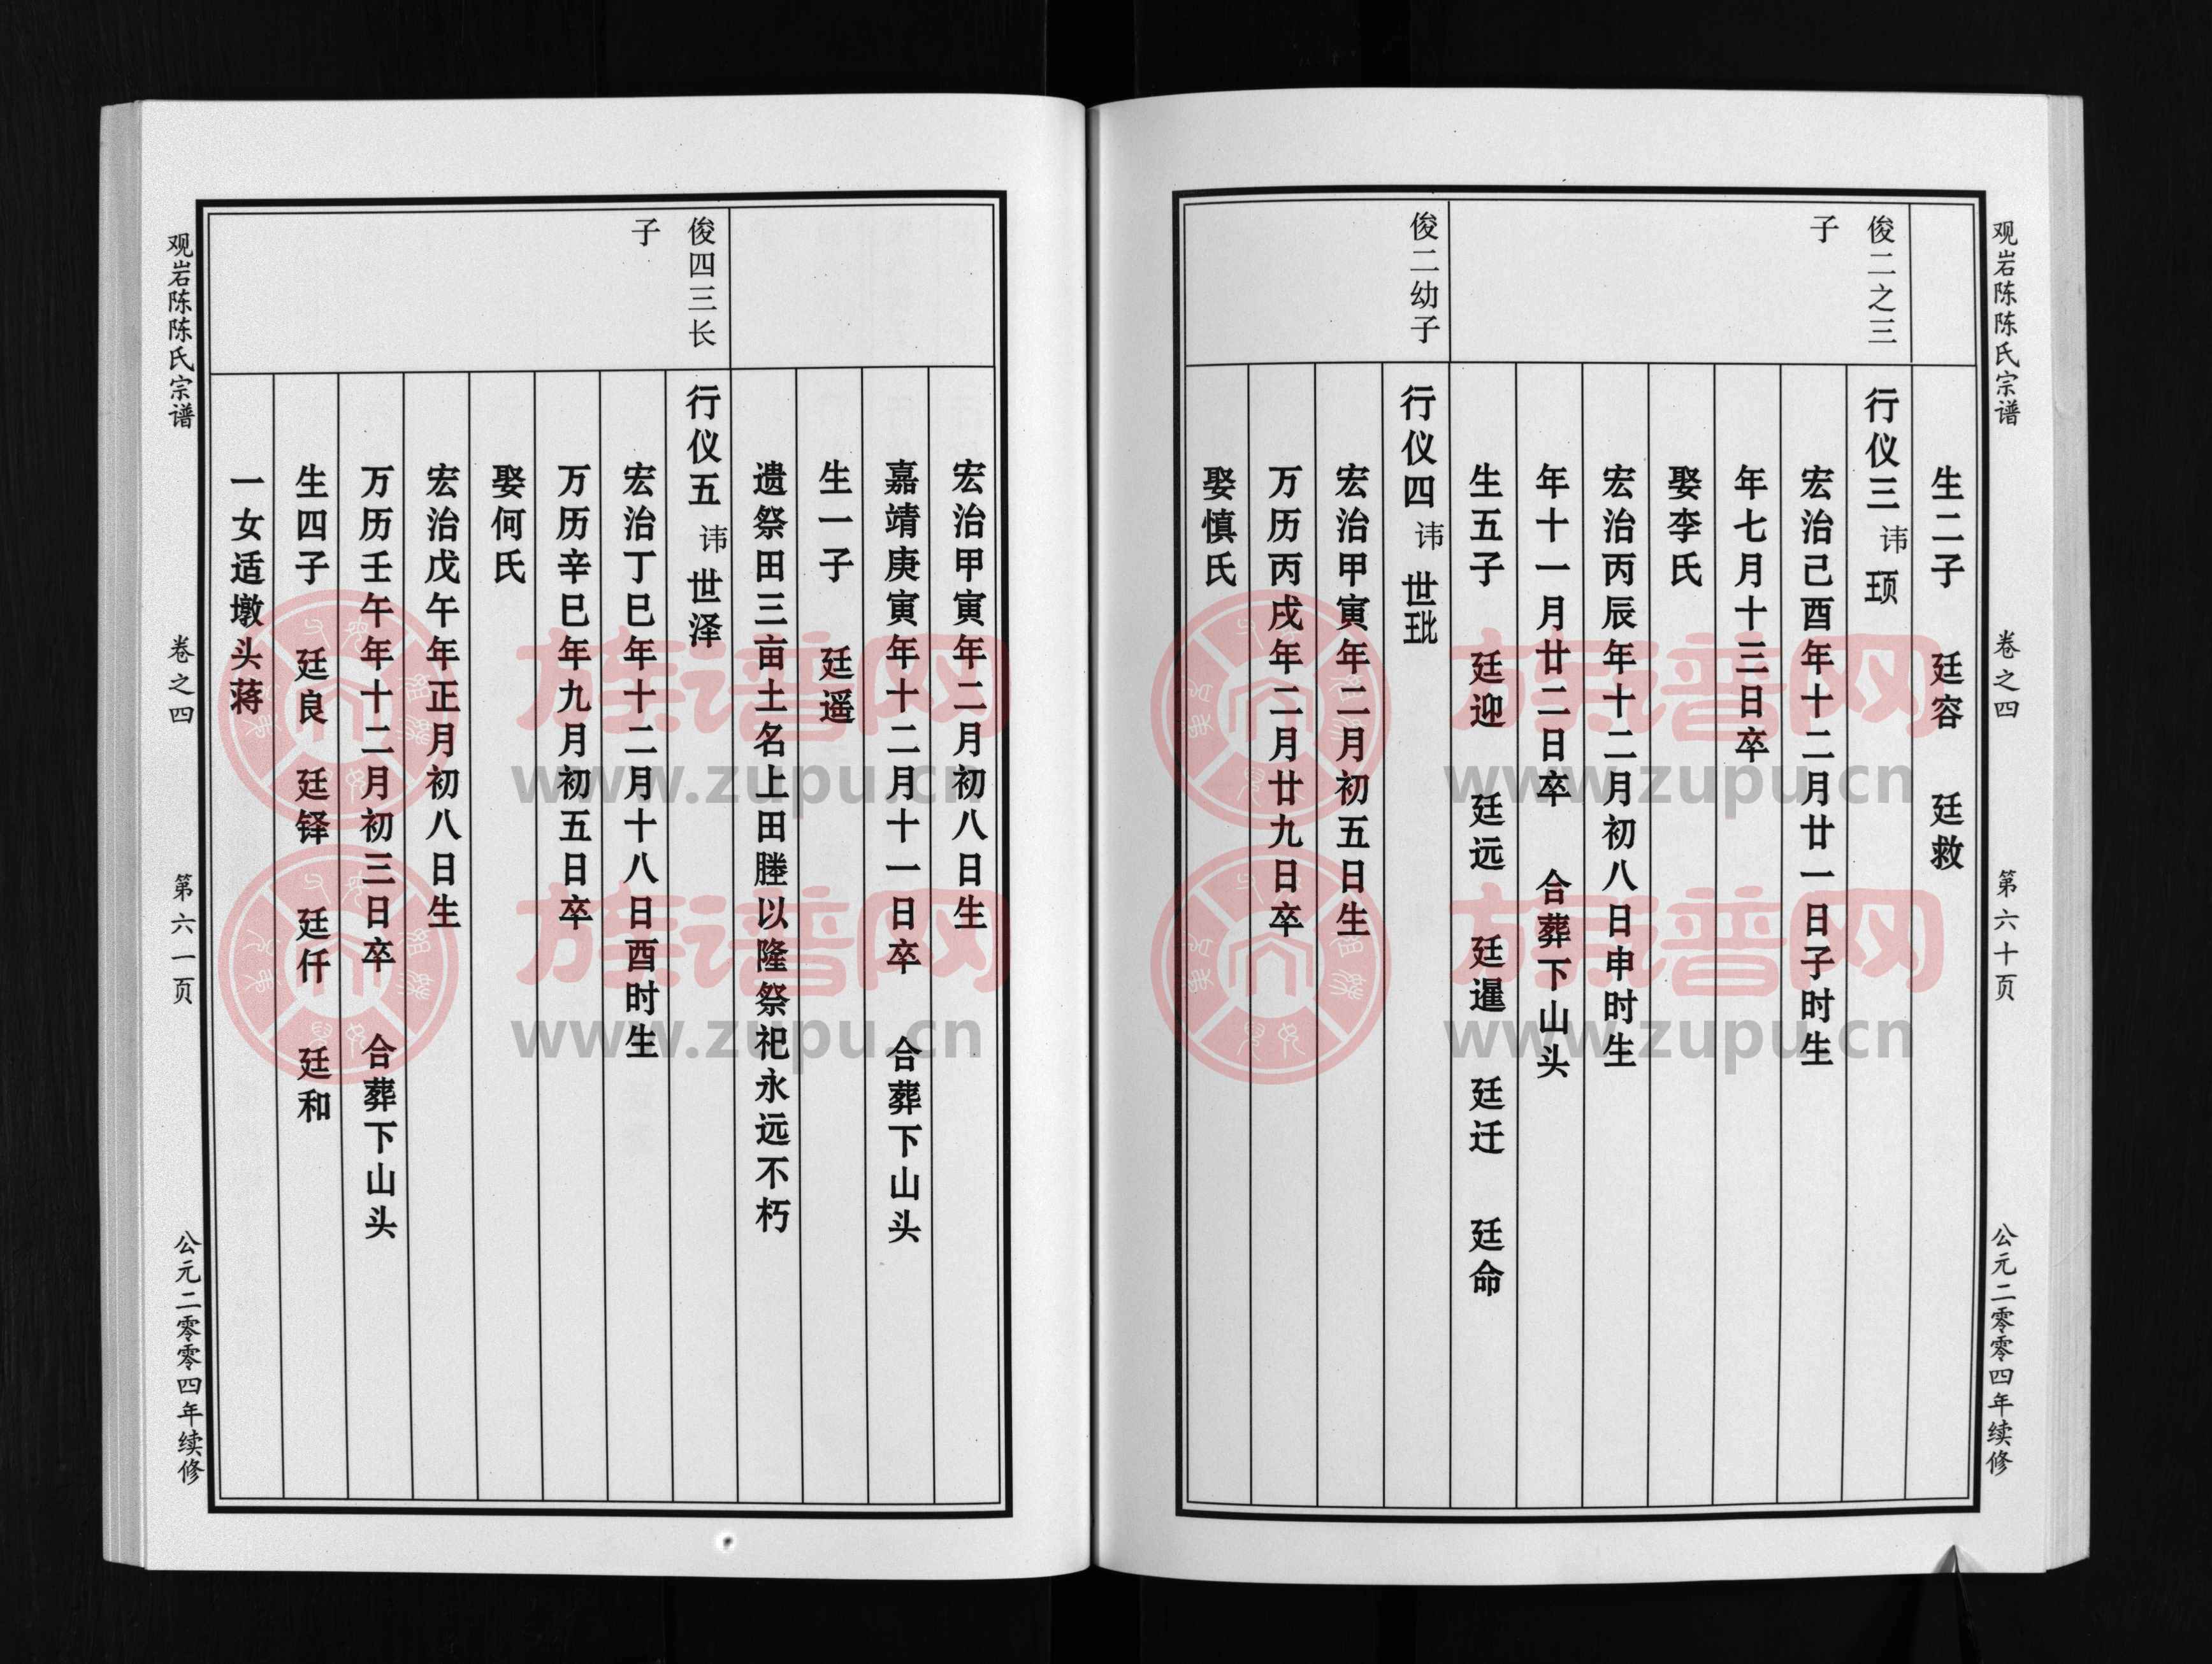 观岩陈陈氏宗谱 卷之四 第六十页 公元二零零四年续修
生二子 廷容 廷救
俊二之三子
行仪三 讳 顼
宏治己酉年十二月廿一日子时生
年七月十三日卒
娶李氏
宏治丙辰年十二月初八日申时生
年十一月廿二日卒 合葬下山头
生五子 廷迎 廷远 廷暹 廷迁 廷命
俊二幼子
行仪四 讳 世玭
宏治甲寅年二月初五日生
万历丙戌年二月廿九日卒
娶慎氏
宏治甲寅年二月初八日生
嘉靖庚寅年十二月十一日卒 合葬下山头
生一子 廷遥
遗祭田三亩土名上田塍以隆祭祀永远不朽
俊四三长子
行仪五 讳 世泽
宏治丁巳年十二月十八日酉时生
万历辛巳年九月初五日卒
娶何氏
宏治戊午年正月初八日生
万历壬午年十二月初三日卒 合葬下山头
生四子 廷良 廷铎 廷仟 廷和
一女适墩头蒋
观岩陈陈氏宗谱 卷之四 第六一页 公元二零零四年续修
族谱网
www.zupu.cn
族谱网
www.zupu.cn
族谱网
www.zupu.cn
族谱网
www.zupu.cn